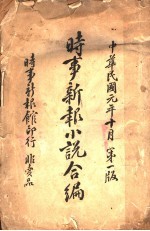 中華民國元年十月第一版
時事新報小說合編
時事新報館印行 非賣品